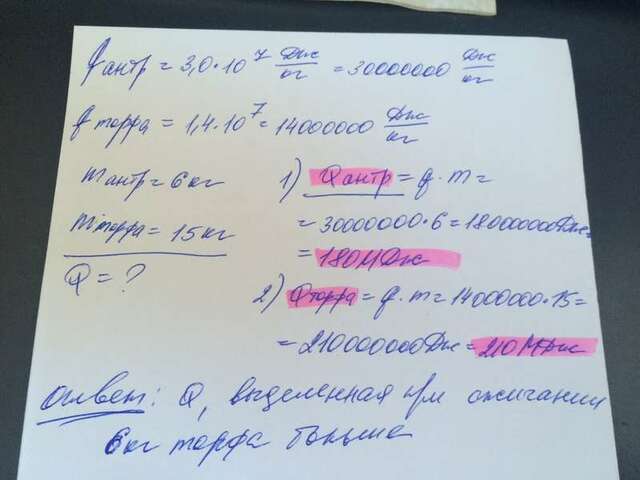 q антр = 3,0·10⁷ Дж/кг = 30000000 Дж/кг
q торфа = 1,4·10⁷ = 14000000 Дж/кг
m антр = 6 кг
m торфа = 15 кг
Q = ?
1) Q антр = q·m =
= 30000000·6 = 180000000 Дж =
= 180 МДж
2) Q торфа = q·m = 14000000·15 =
= 210000000 Дж = 210 МДж
Ответ: Q, выделенная при сжигании
6 кг торфа больше